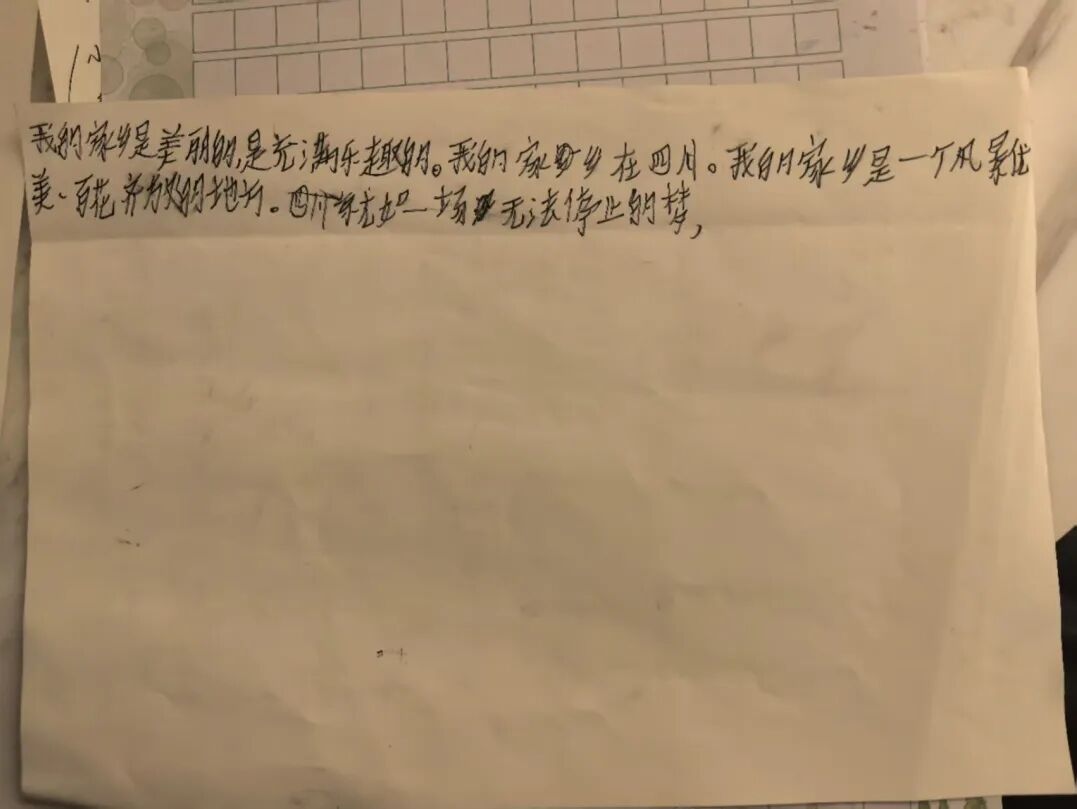 我的家乡是美丽的,是充满乐趣的。我的家乡在四川。我的家乡是一个风景优
美、百花齐放的地方。四川宛如一场无法停止的梦,